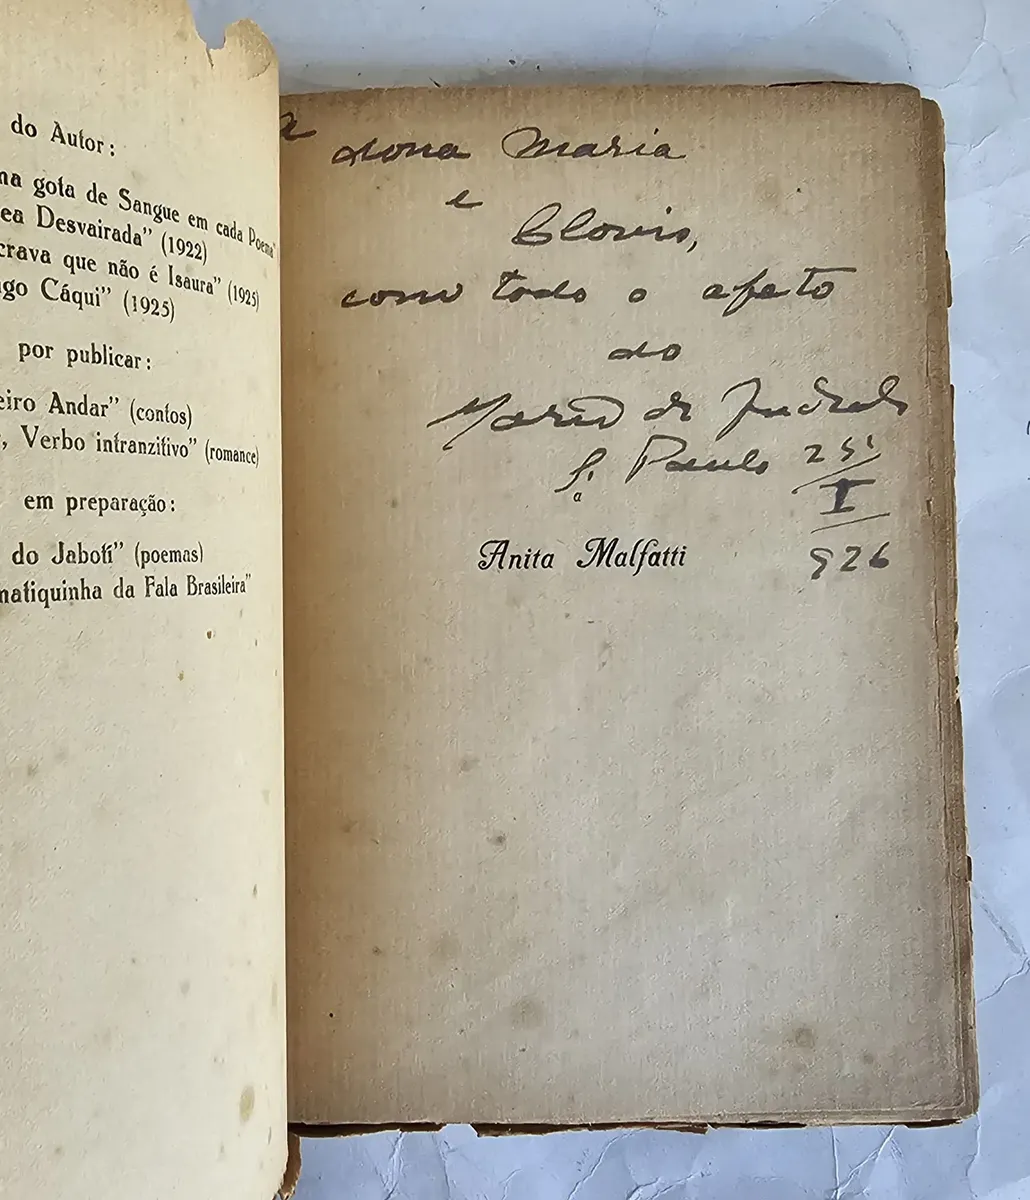 do Autor:
ma gota de Sangue em cada Poema"
ea Desvairada" (1922)
crava que não é Isaura" (1925)
go Cáqui" (1925)
por publicar:
eiro Andar" (contos)
, Verbo intranzitivo" (romance)
em preparação:
do Jabotí" (poemas)
matiquinha da Fala Brasileira"
A
dona Maria
e
Clovis,
com todo o afeto
do
Mario de Andrade
S. Paulo 25
I
926
Anita Malfatti